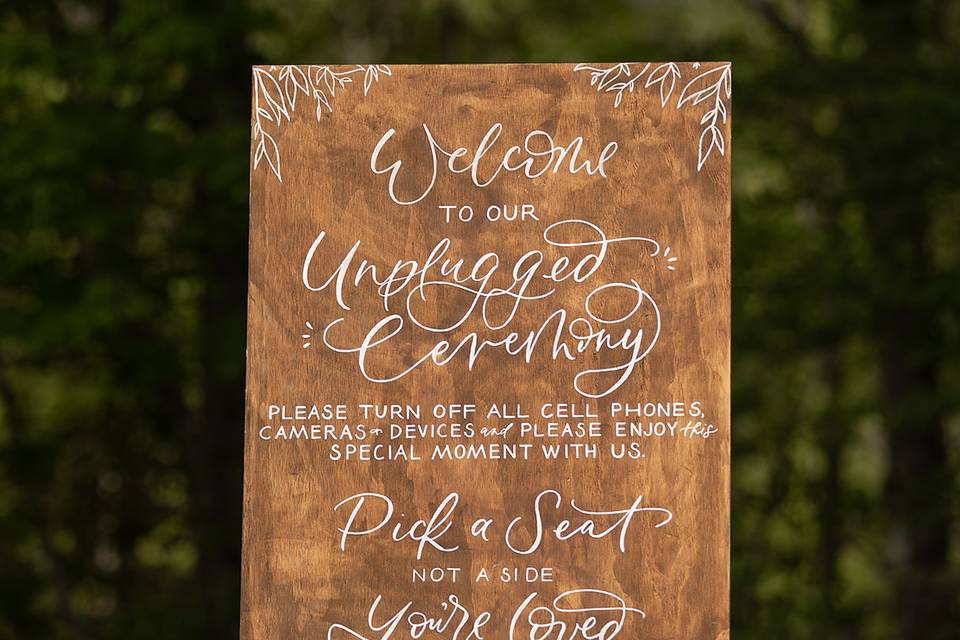 Welcome
TO OUR
Unplugged
Ceremony
PLEASE TURN OFF ALL CELL PHONES,
CAMERAS or DEVICES and PLEASE ENJOY this
SPECIAL MOMENT WITH US.
Pick a Seat
NOT A SIDE
You're Loved